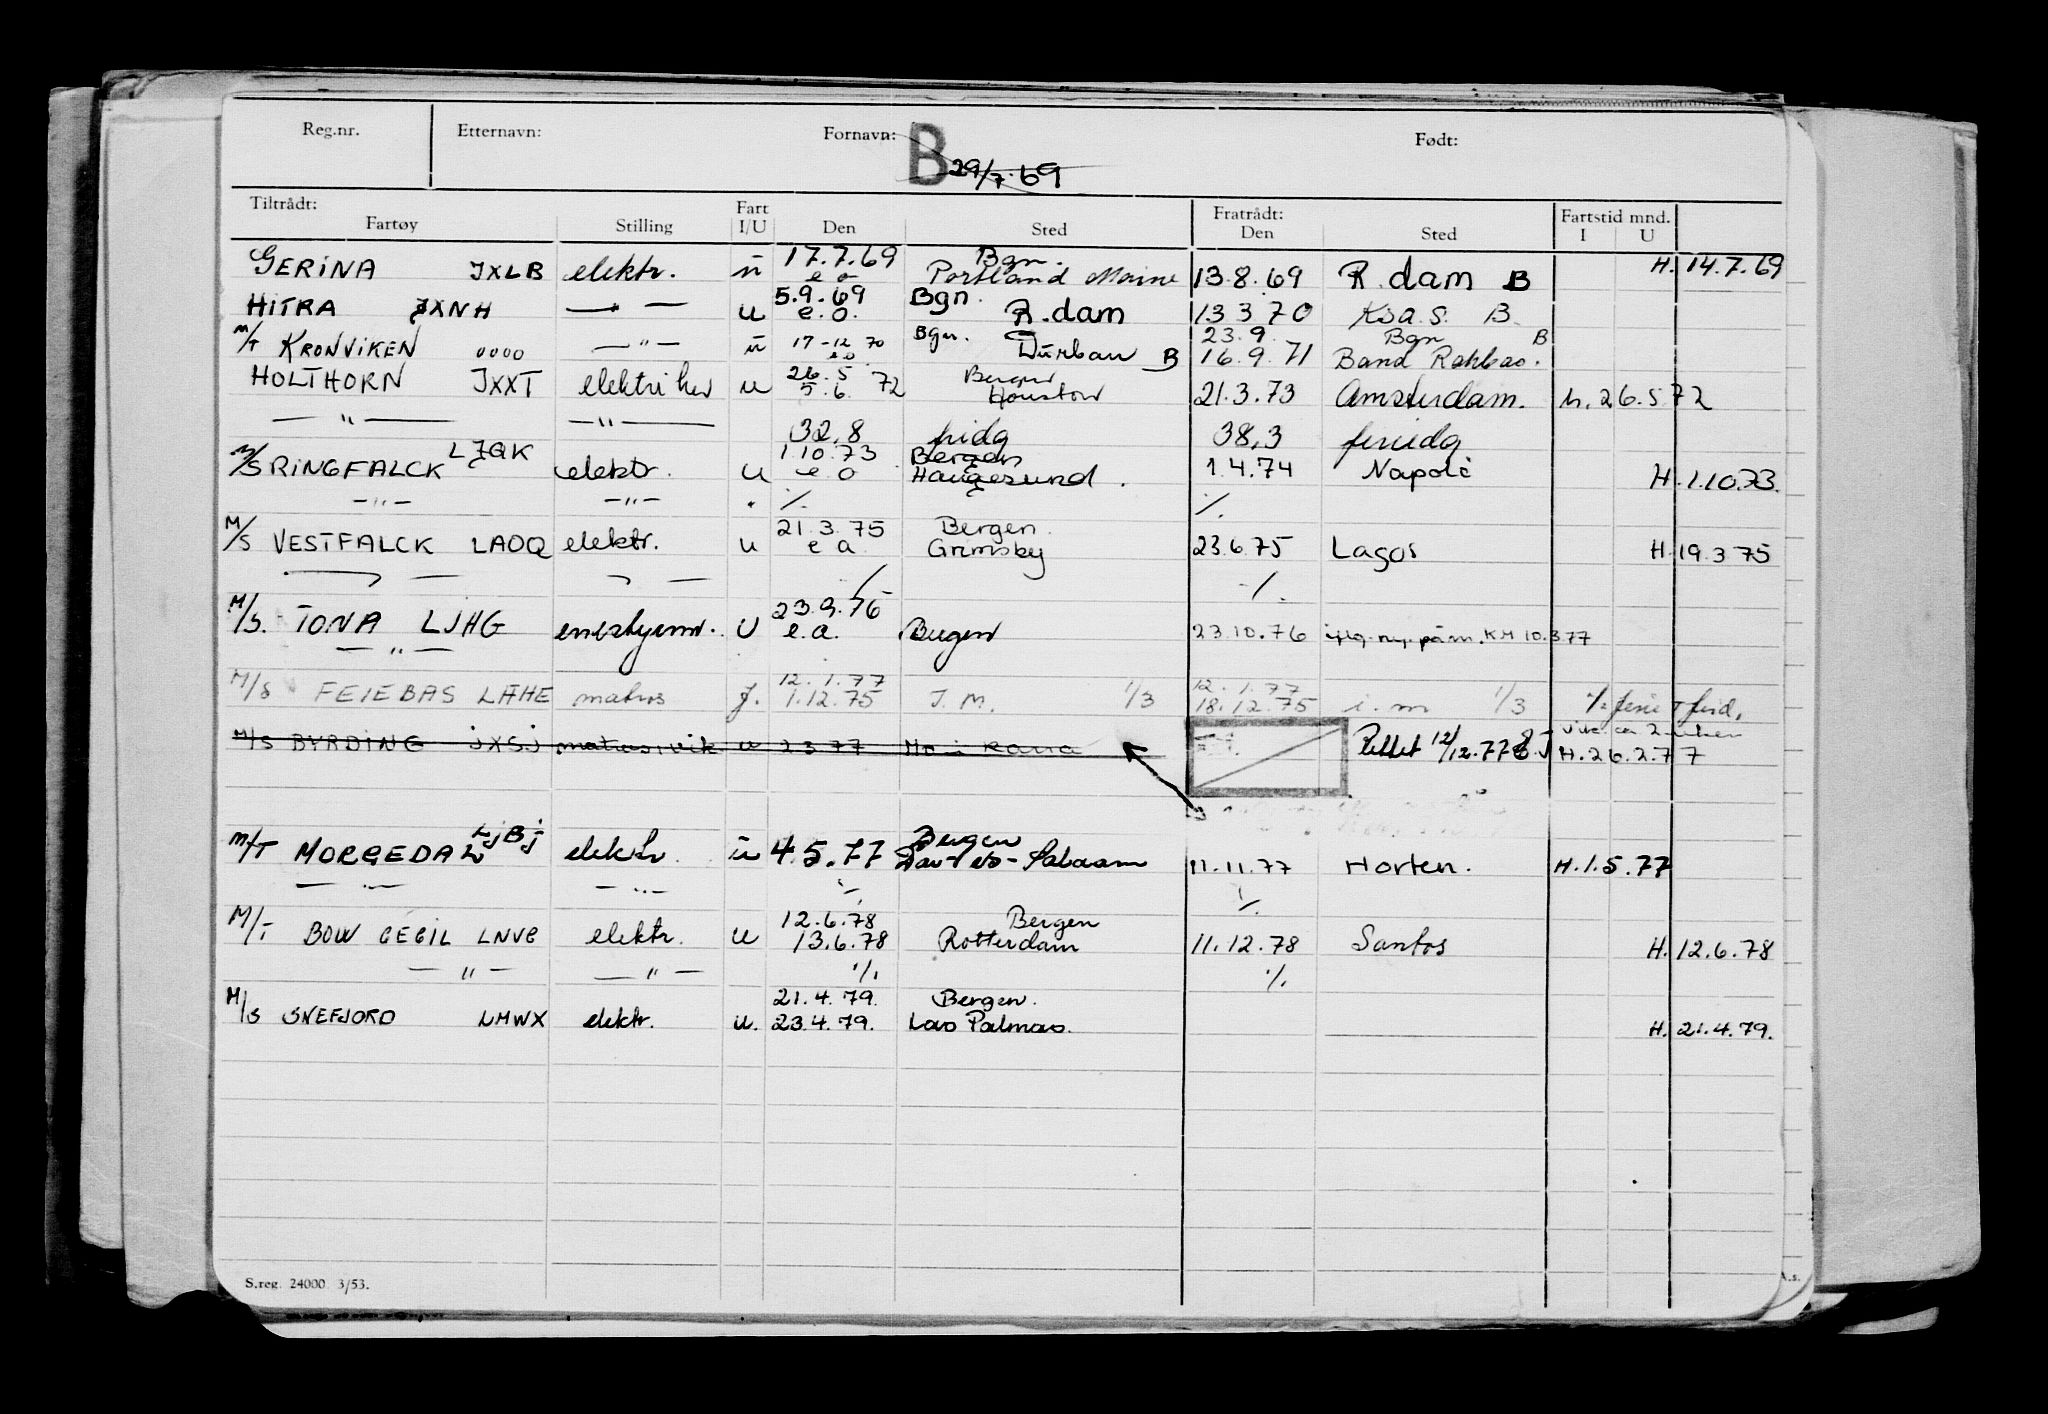 Reg.nr. Etternavn: Fornavn: Født:
B 29/7.69
Tiltrådt: Fart Fratrådt: Fartstid mnd.
Fartøy Stilling I/U Den Sted Den Sted I U
17.7.69 Bgn.
GERINA JXLB elektr. u e o Portland Maine 13.8.69 R.dam B H. 14.7.69
5.9.69 Bgn.
HITRA JXNH — " — u e.o. R.dam 13 3 70 B
17-12 70 Bgn. 23.9. Bgn B
M/T KRONVIKEN oooo — " — u e o Durban B 16.9.71
26.5 Bergen
HOLTHORN JXXT elektriker u 5.6. 72 Houston 21.3.73 Amsterdam. h. 26.5 72
— " — — " — 32,8 38,3
1 10.73 Bergen
M/S RINGFALCK LJQK elektr. u e o Haugesund. 1.4.74 Napoli H. 1.10.73.
— " — — " — " ./. ./.
21.3.75 Bergen.
M/S VESTFALCK LAOQ elektr. u e a Grimsby 23.6.75 Lagos H. 19.3 75
./. ./.
23.9.76
M/S. TONA LJHG U e.a. Bergen 23.10.76 KM 10.3 77
— " —
12.1.77 12.1.77
M/S FEIEBAS LAHE matros J. 1.12.75 I.M. 1/3 18.12.75 i.m 1/3
M/S BYRDING JXSJ matros vik u 2 3 77 Mo i Rana Rettet 12/12.77 H. 26.2.77
Bergen
M/T MORGEDAL LJBJ elektr. u 4.5.77 Dar-es-Salaam 11.11.77 Horten. H. 1.5.77
— " — — " — ./. ./.
12.6.78 Bergen
M/T BOW CECIL LNVG elektr. u 13.6.78 Rotterdam 11.12.78 Santos H. 12.6.78
— " — — " — ./. ./.
21.4.79. Bergen.
M/S SNEFJORD LMWX elektr. u. 23.4.79. Las Palmas. H. 21.4.79.
S.reg. 24000 3/53.